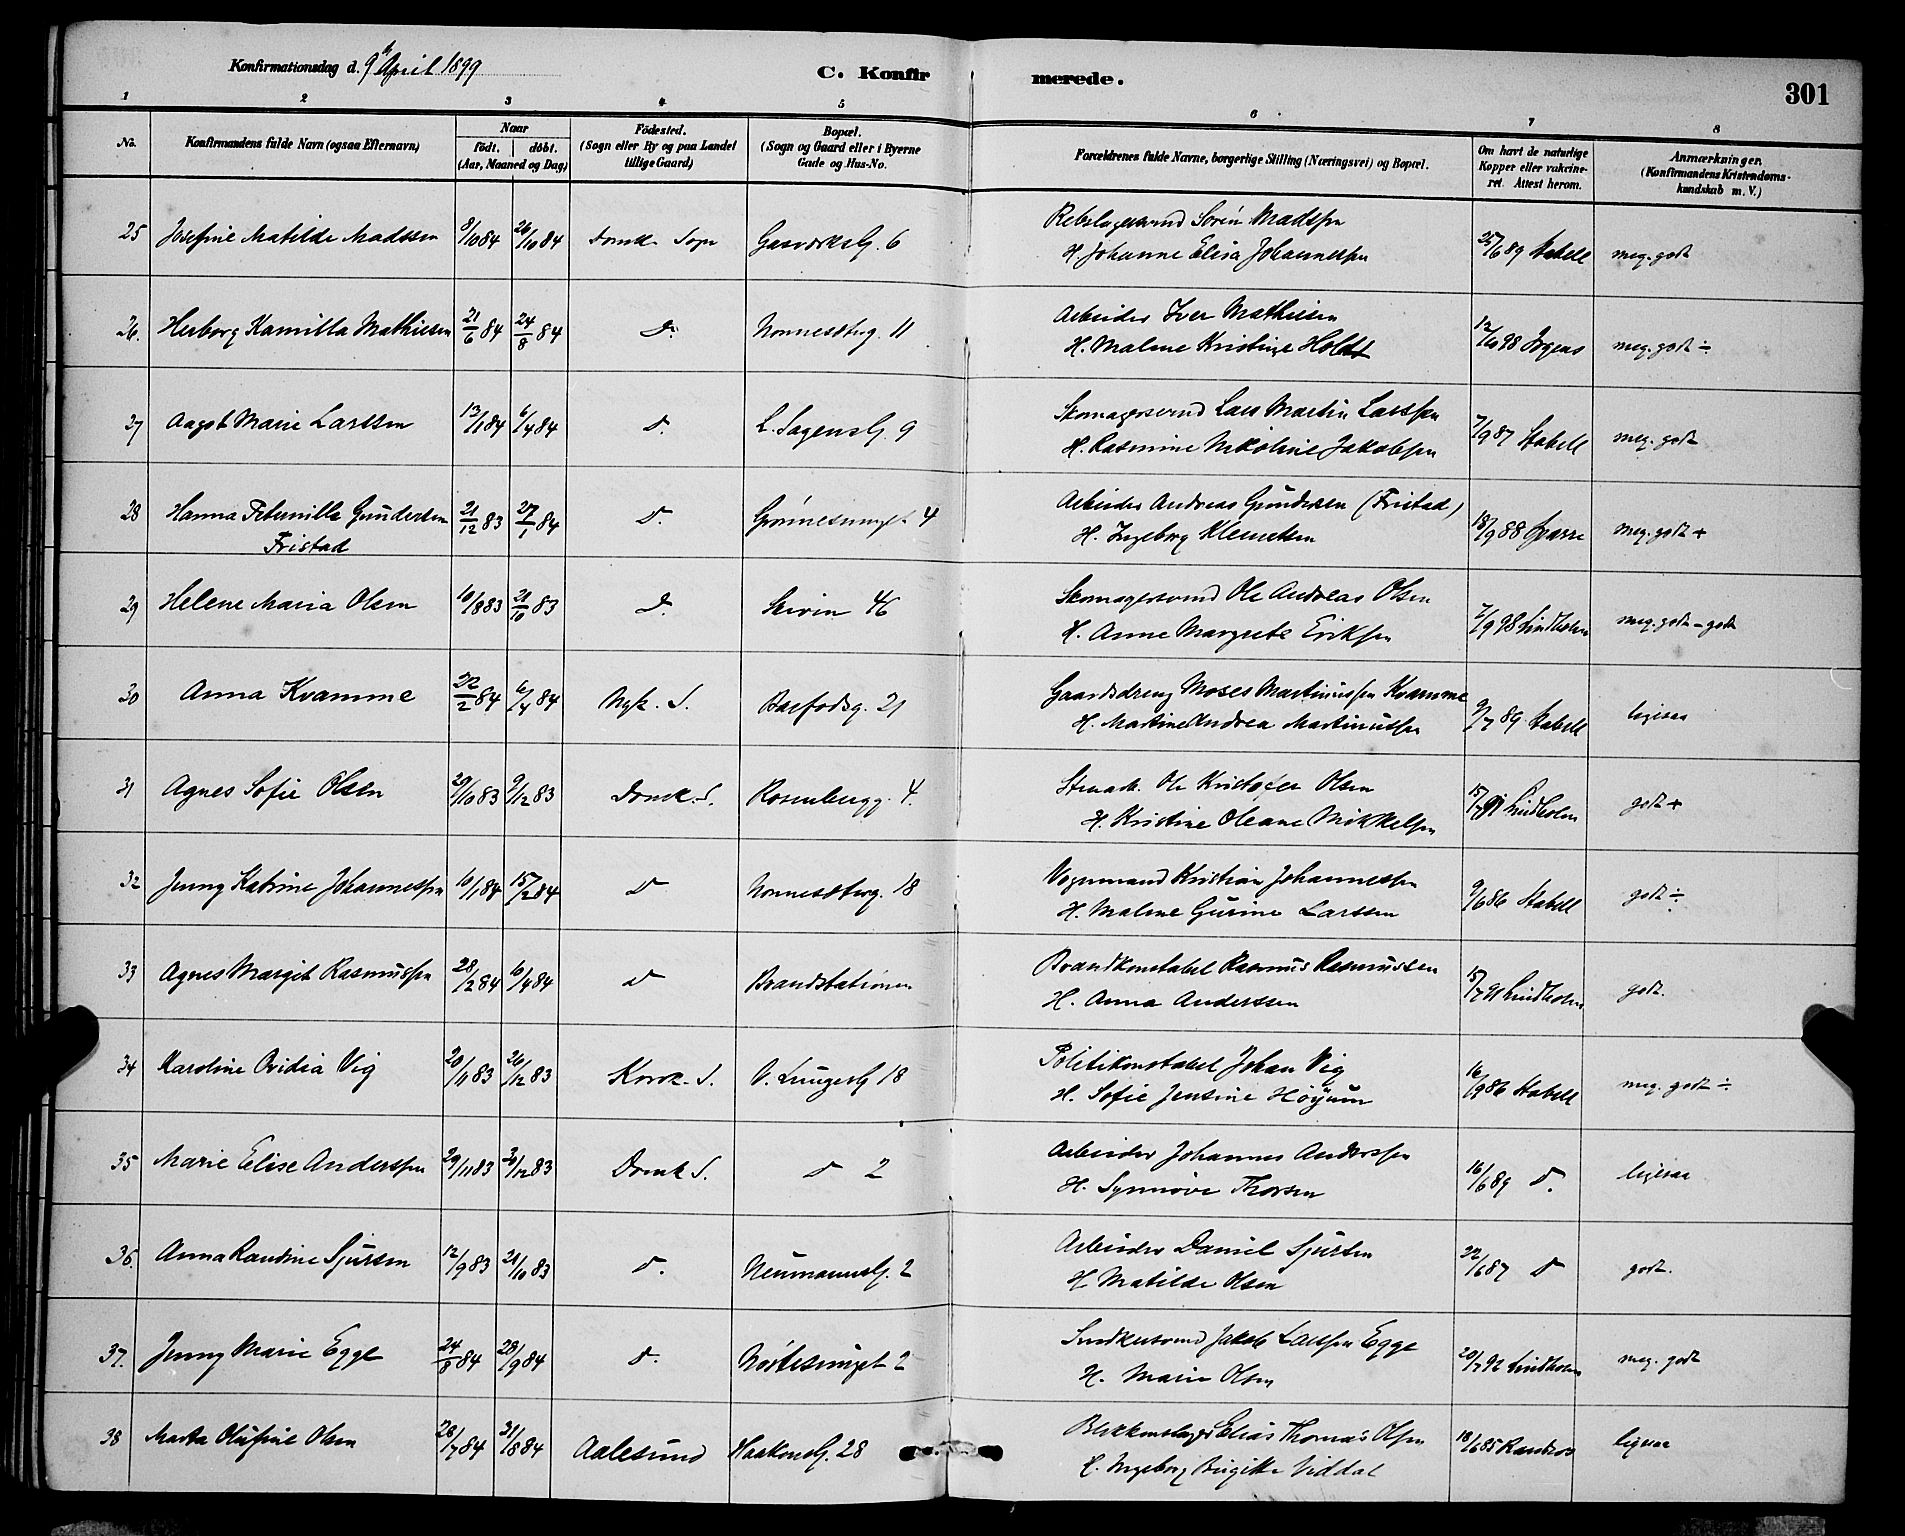 Konfirmationsdag d. 9 April 1899
C. Konfirmerede.
301
1 2 3 4 5 6 7 8
No. Konfirmandens fulde Navn (ogsaa Efternavn) Naar födt. döbt. (Aar, Maaned og Dag) Födested. (Sogn eller By og paa Landet tillige Gaard) Bopæl. (Sogn og Gaard eller i Byerne Gade og Hus-No. Forældrenes fulde Navne, borgerlige Stilling (Næringsvei) og Bopæl. Om havt de naturlige Kopper eller vakcineret. Attest herom. Anmærkninger. (Konfirmandens Kristendomskundskab m. V.)
25 Josefine Matilde Madssen 8/10 84 26/10 84 Domk. Sogn Gasværksg. 6 Rebslagersvend Sören Madssen
H. Johanne Elisa Johannessen 25/6 89 Stabell meg. godt
26. Herborg Kamilla Mathissen 21/6 84 24/8 84 D. Nonneseterg. 11 Arbeider Iver Mathissen
H. Malene Kristine Holdt 12/6 98 meg. godt ÷
27 Aagot Marie Larssen 13/1 84 6/4 84 D. L. Sagensg. 9 Skomagersvend Lars Martin Larssen
H. Rasmine Nikoline Jakobssen 7/9 87 Stabell meg. godt
28 Hanna Peternille Gundersen
Fristad 21/12 83 27/1 84 D. 4 Arbeider Andreas Gundersen (Fristad)
H. Ingeborg Klemetsen 18/9 88 meg. godt +
29 Helene Maria Olsen 10/8 83 21/10 83 D. Skiven 46 Skomagersvend Ole Andreas Olsen
H. Anne Margrete Eriksen 7/9 98 Lindholm meg. godt - godt
30 Anna Kvamme 22/2 84 6/4 84 Nyk. S. Barfodsg. 21 Gaardsdreng Moses Martinussen Kvamme
H. Martine Andrea Martinussen 9/7 89 Stabell ligesaa
31 Agnes Sofie Olsen 20/10 83 9/12 83 Domk. S. Rosenbergg. 4. Ole Kristofer Olsen
H. Kristine Oleane Mikkelsen 15/7 91 Lindholm godt +
32 Jenny Katrine Johannessen 10/1 84 15/2 84 D Nonnesetterg. 18 Vognmand Kristian Johannessen
H. Malene Gurine Larssen 9/6 86 Stabell godt ÷
33 Agnes Margit Rasmussen 28/2 84 6/4 84 D Brandstationen Brandkonstabel Rasmus Rasmussen
H. Anna Anderssen 15/7 91 Lindholm godt.
34 Karoline Ovidia Vig 20/11 83 26/12 83 Korsk. S. V. Lungeg 18 Politikonstabel Johan Vig
H. Sofie Jensine Höyum 16/9 86 Stabell meg. godt ÷
35 Marie Elise Anderssen 29/11 83 30/12 83 Domk S. D 2 Arbeider Johannes Anderssen
H. Synnöve Thorsen 16/6 89 D. ligesaa
36. Anna Randine Sjursen 12/9 83 21/10 83 D. Neumannsg. 2 Arbeider Daniel Sjursen
H Matilde Olsen 22/6 87 D godt.
37. Jenny Marie Egge 24/8 84 28/9 84 D. 2 Snedkersvend Jakob Larssen Egge
H. Marie Olsen 20/7 92 Lindholm meg. godt
38 Marta Olufine Olsen 26/7 84 31/8 84 Aalesund Haakonsg. 28 Blikkenslager Elias Thomas Olsen
H. Ingeborg Birgitte Viddal 18/6 85 ligesaa